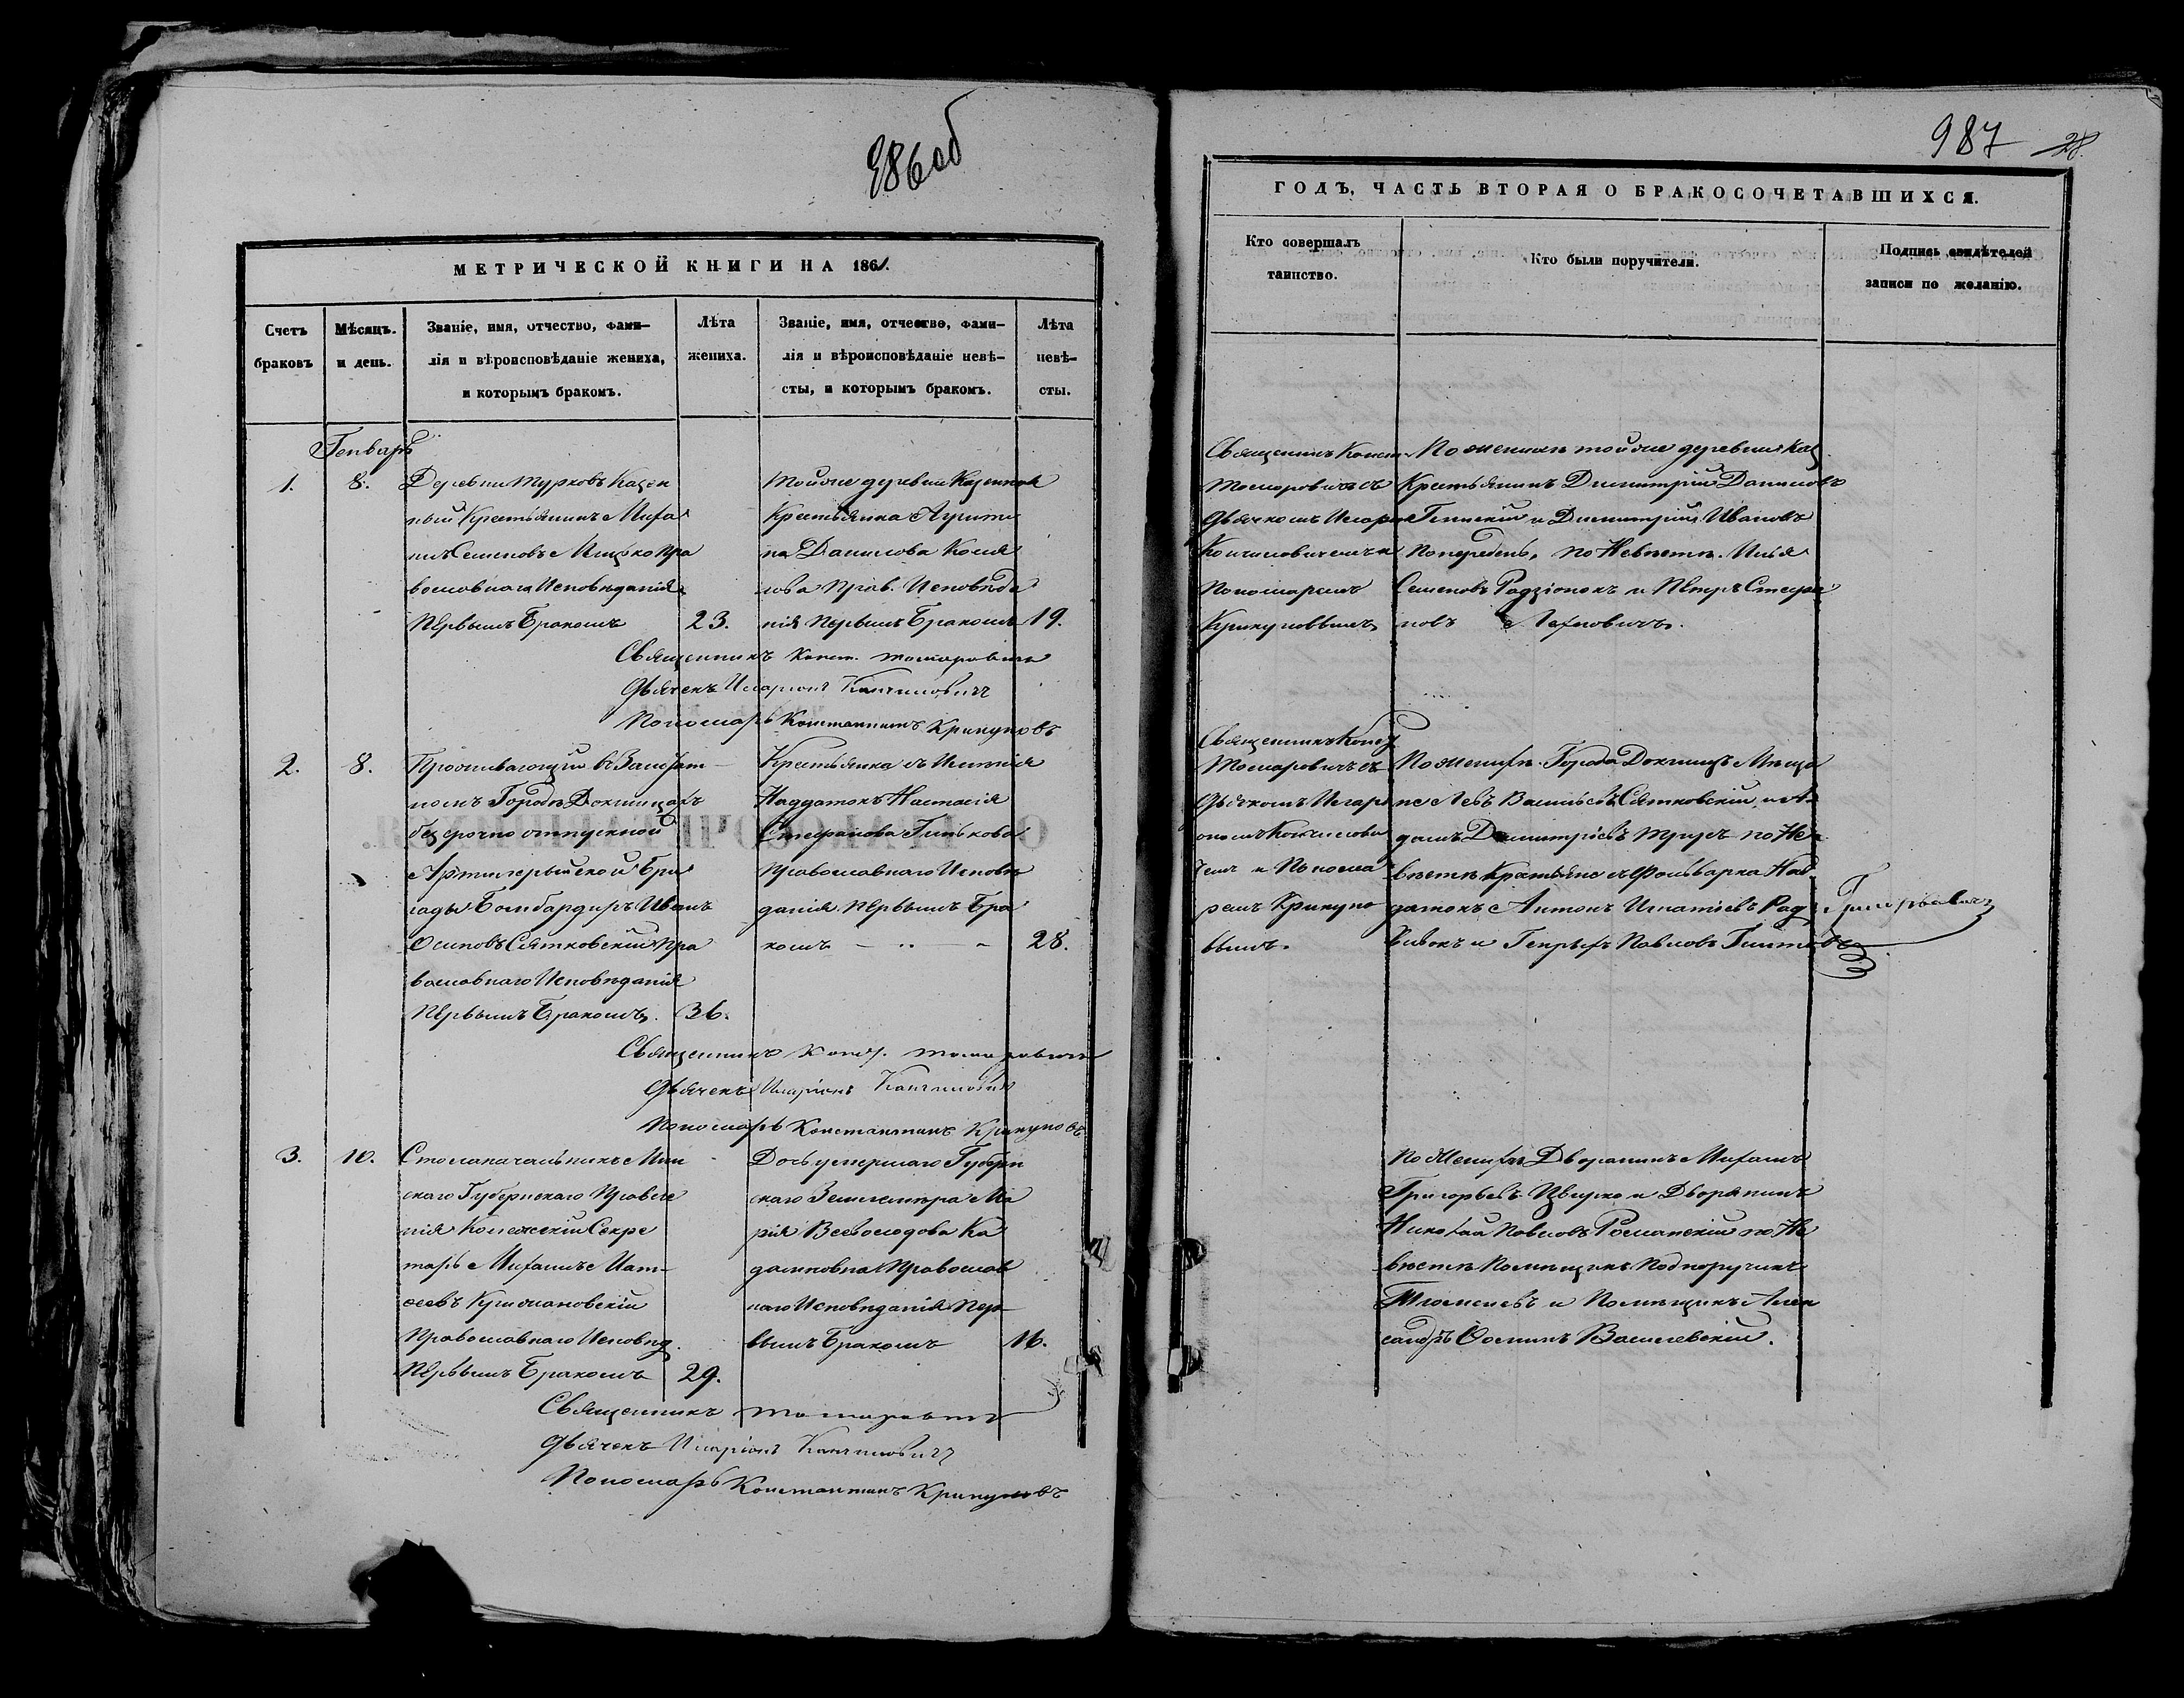 986 об
МЕТРИЧЕСКОЙ КНИГИ НА 1861.
Счетъ браковъ
Мѣсяцъ. и день.
Званіе, имя, отчество, фами-
лія и вѣроисповѣданіе жениха,
и которымъ бракомъ.
Лѣта жениха.
Званіе, имя, отчество, фами-
лія и вѣроисповѣданіе невѣ-
сты, и которымъ бракомъ.
Лѣта невѣ-
сты.
Генварь
1. 8.
Деревни Турковъ Казен
ный Крестьянинъ Миха
илъ Семеновъ Ицько Пра
вославнаго Исповѣданія
Первымъ Бракомъ 23.
Тойже деревни Казенная
Крестьянка Агрипи
на Данилова
лова Прав. Исповѣда
нія Первымъ Бракомъ 19.
Священникъ Конст. Томаровичъ
Дьячекъ Иларіонъ Канчиловичъ
Пономарь Константинъ Крикуновъ
2. 8.
Проживающій въ Заштат
номъ Городѣ Докшицахъ
безсрочно отпускной
Артилерыйской Бри
гады Бомбардиръ Иванъ
Осиповъ Сятковскій Пра
вославнаго Исповѣданія
Первымъ Бракомъ. 36.
Крестьянка съ Имѣнія
Надзатокъ Настасія
Стефанова Гинькова
Православнаго Исповѣ
данія Первымъ Бра
комъ 28.
Священникъ Конст. Томаровичъ
Дьячекъ Иларіонъ Канчиловичъ
Пономарь Константинъ Крикуновъ
3. 10.
Столоначальникъ Мин
скаго Губернскаго Правле
нія Колежскій Секре
тарь Михаилъ Мат-
ѳеевъ Кржижановскій
Православнаго Исповѣд.
Первымъ Бракомъ 29.
Дочь умершаго Губерн
скаго Землемѣра Ма
рія Всеволодова Ка
Православ
наго Исповѣданія Пер-
вымъ Бракомъ 16.
Священникъ Томаровичъ
Дьячекъ Иларіонъ Канчиловичъ
Пономарь Константинъ Крикуновъ
987 28.
ГОДЪ, ЧАСТЬ ВТОРАЯ О БРАКОСОЧЕТАВШИХСЯ.
Кто совершалъ
таинство.
Кто были поручители.
Подпись свидѣтелей
записи по желанію.
Священникъ Конст.
Томаровичъ съ
Дьячкомъ Илари
Канчиловичемъ и
Пономаремъ
Крикуновымъ
По женихѣ тойже деревни Каз.
Крестьянинъ Димитрій Даниловъ
и Димитрій Ивановъ
по Невѣстѣ. Илья
Семеновъ Радзіонокъ и Петръ Стефа
новъ Лахновичъ.
Священникъ Конст.
Томаровичъ съ
Дьячкомъ Илари
ономъ Канчилови
чемъ и Понома
ремъ Крикуно
вымъ.
По женихѣ. Города Докшицъ Мѣща
не Левъ Васильевъ Сятковскій и А-
дамъ Димитріевъ по Не
вѣстѣ Крестьяне съ Фольварка Над-
Антонъ Игнатіевъ
и Генрыхъ Павловъ
По Женихѣ Дворянинъ Михаилъ
Григорьевъ Цвирко и Дворянинъ
Николай Павловъ Романскій по Не
вѣстѣ Помѣщикъ Подпоручикъ
и Помѣщикъ Алек
сандръ Осиповъ Василевскій.